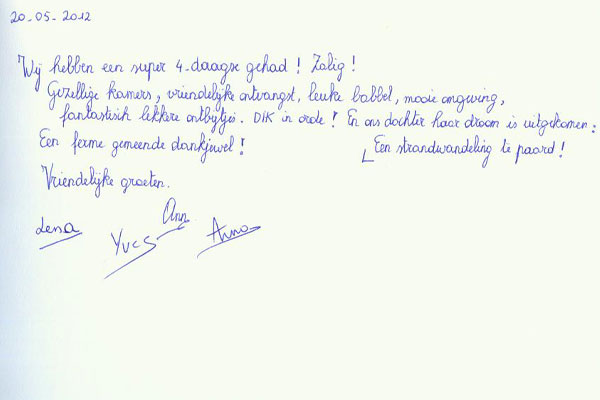 20-05-2012
Wij hebben een super 4-daagse gehad! Zalig!
Gezellige kamers, vriendelijke ontvangst, leuke babbel, mooie omgeving,
fantastisch lekkere ontbijtjes. DIK in orde! En ons dochter haar droom is uitgekomen:
Een ferme gemeende dankjewel!
Een strandwandeling te paard!
Vriendelijke groeten.
Lena
Ann
Yves
Anna